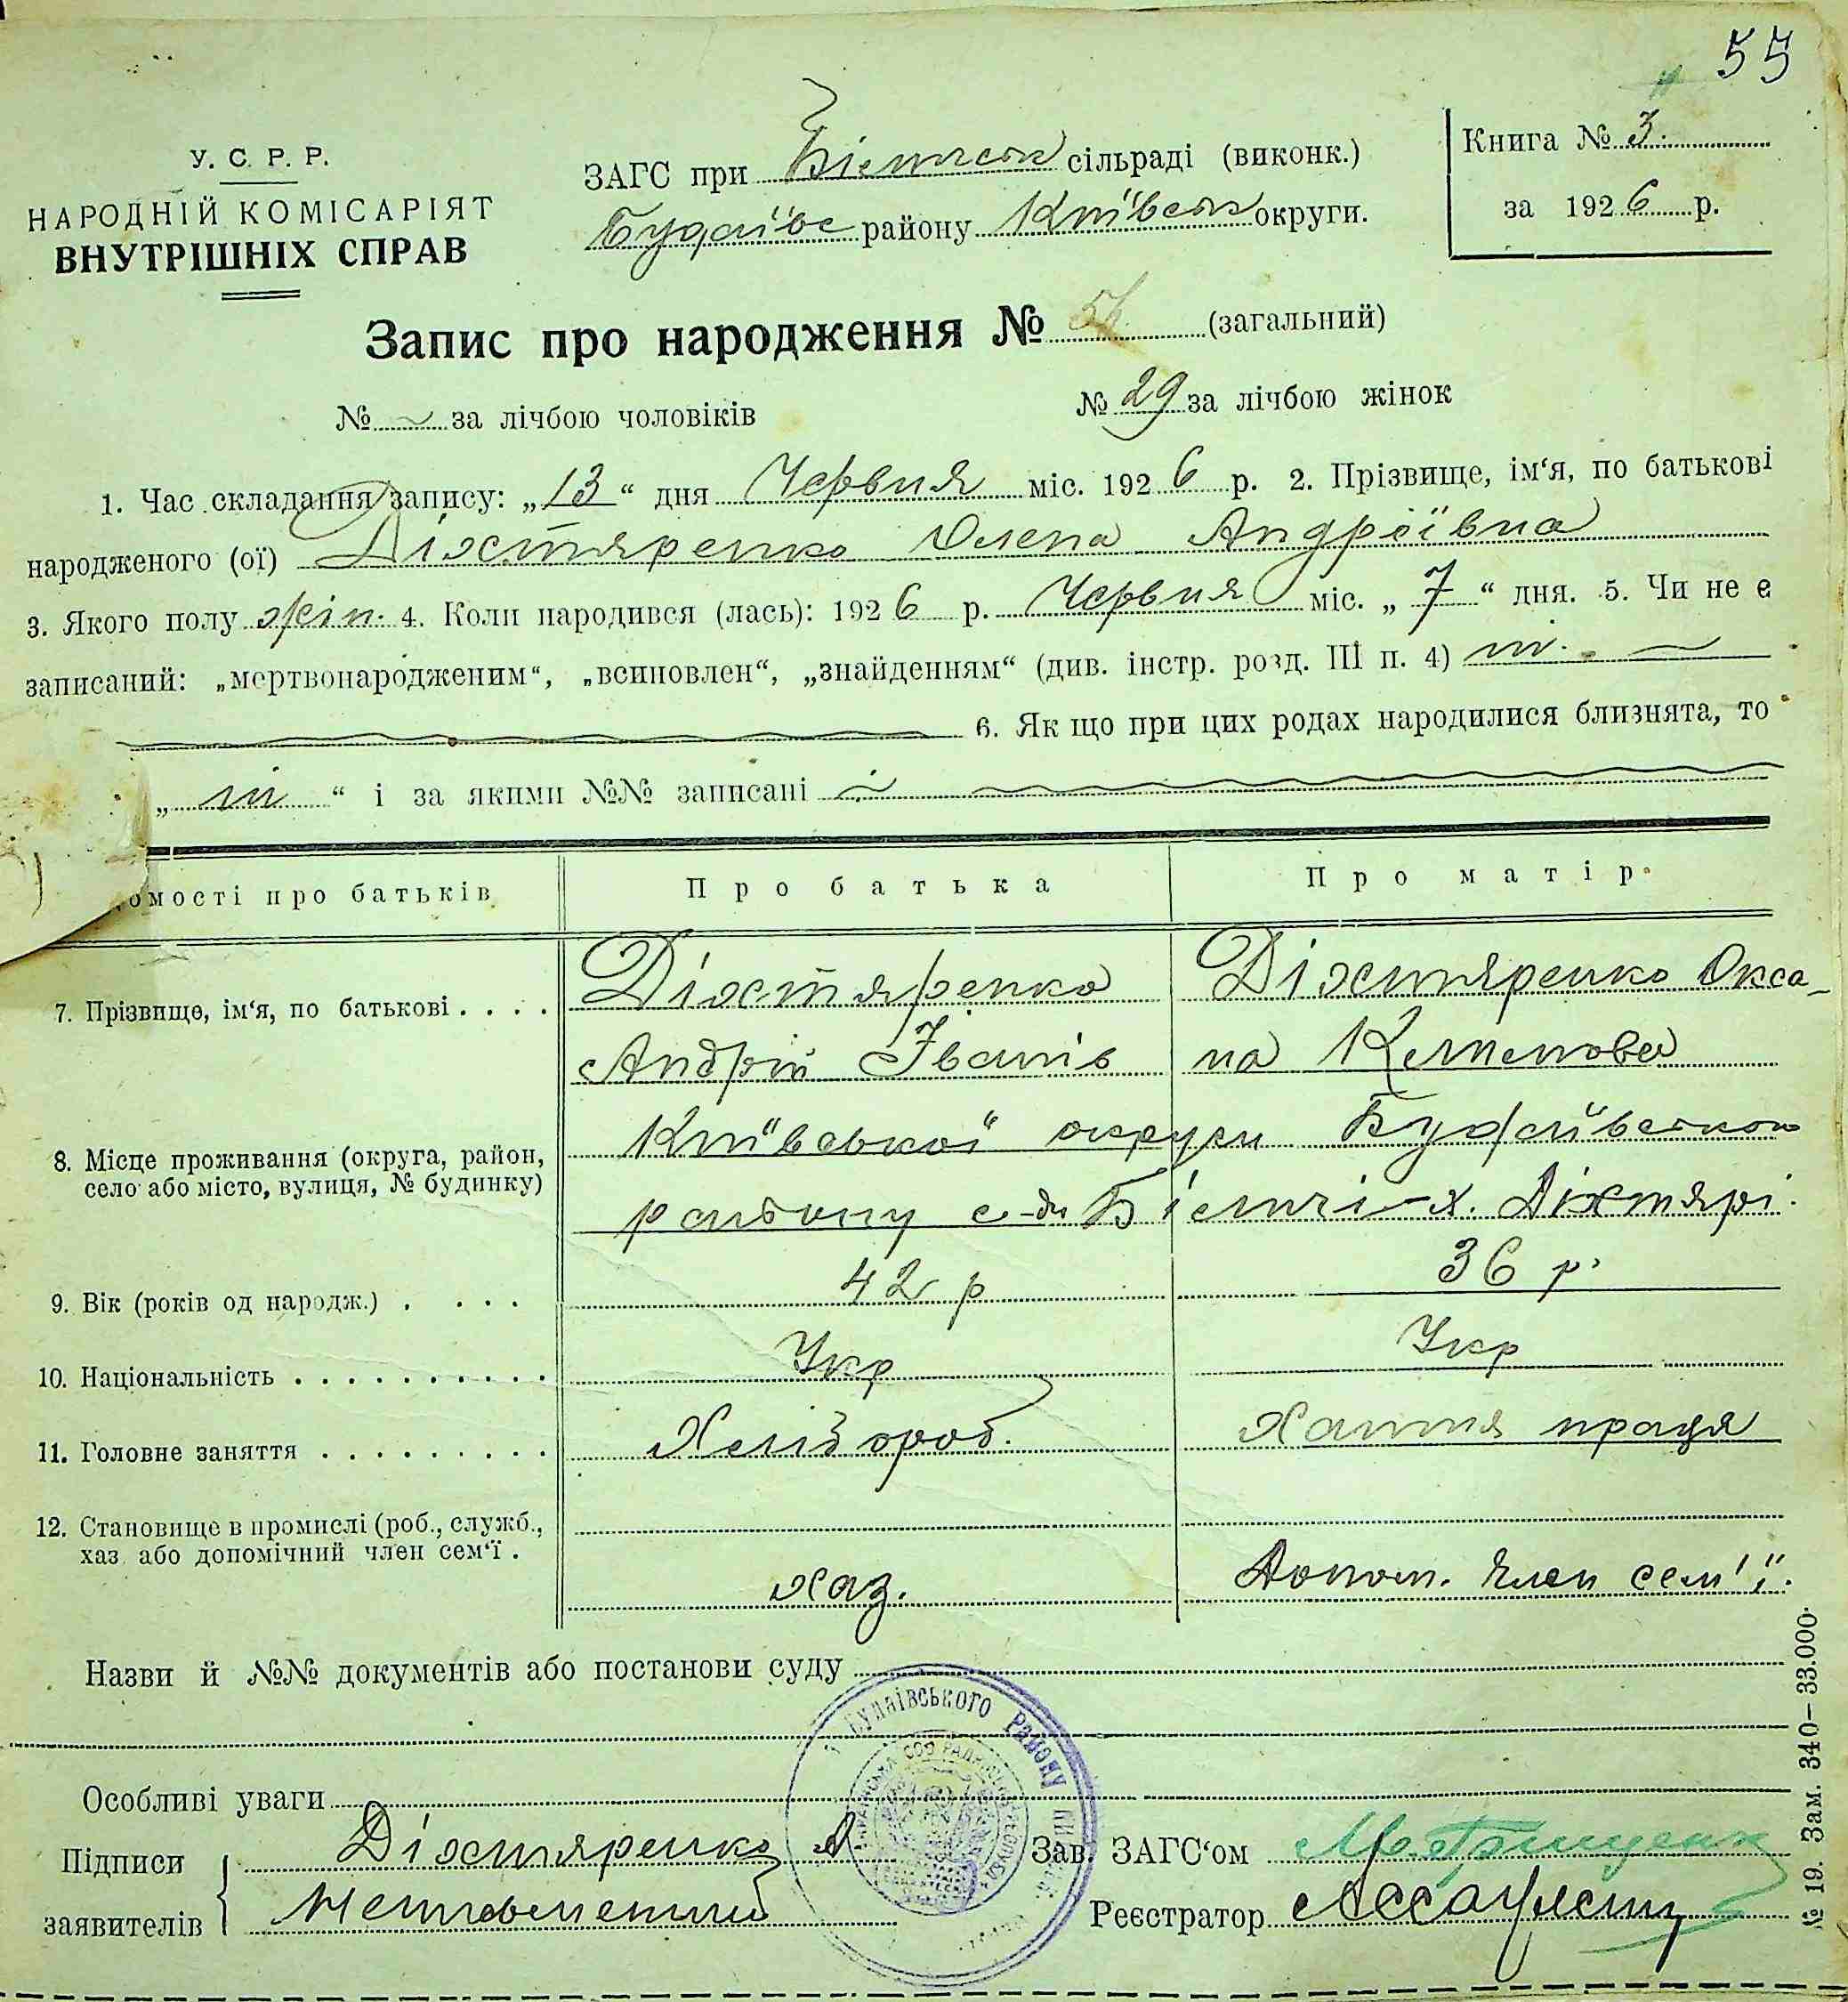 55
У. С. Р. Р.
НАРОДНІЙ КОМІСАРІЯТ
ВНУТРІШНІХ СПРАВ
ЗАГС при Біличськ сільраді (виконк.)
Будаївс району Київськ округи.
Книга № 3.
за 1926 р.
Запис про народження № 54 (загальний)
№ ~ за лічбою чоловіків № 29 за лічбою жінок
1. Час складання запису: „13“ дня Червня міс. 1926 р. 2. Прізвище, ім‘я, по батькові
народженого (ої) Діхтяренко Олена Андріївна
3. Якого полу жін. 4. Коли народився (лась): 1926 р. Червня міс. „7“ дня. 5. Чи не є
записаний: „мертвонародженим“, „всиновлен“, „знайденням“ (див. інстр. розд. III п. 4) ні.
6. Як що при цих родах народилися близнята, то
„ні“ і за якими №№ записані
омості про батьків Про батька Про матір
7. Прізвище, ім‘я, по батькові . . . . Діхтяренко Діхтяренко Окса-
Андрій Іванів на Клименова
8. Місце проживання (округа, район, село або місто, вулиця, № будинку) Київської округи Будаївського
району с-ди Біличі х. Діхтярі.
9. Вік (років од народж.) . . . . 42 р 36 р.
10. Національність . . . . . . . . . . Укр Укр
11. Головне заняття . . . . . . . . . Хлібороб. Хатня праця
12. Становище в промислі (роб., служб.,
хаз або допомічний член сем‘ї .
хаз. Допом. член сем'ї.
Назви й №№ документів або постанови суду
Будаївського Району
Особливі уваги
Підписи
заявителів
Діхтяренко А
Неписьменний
Зав. ЗАГС‘ом
Реєстратор
№ 19. Зам. 340—33.000.